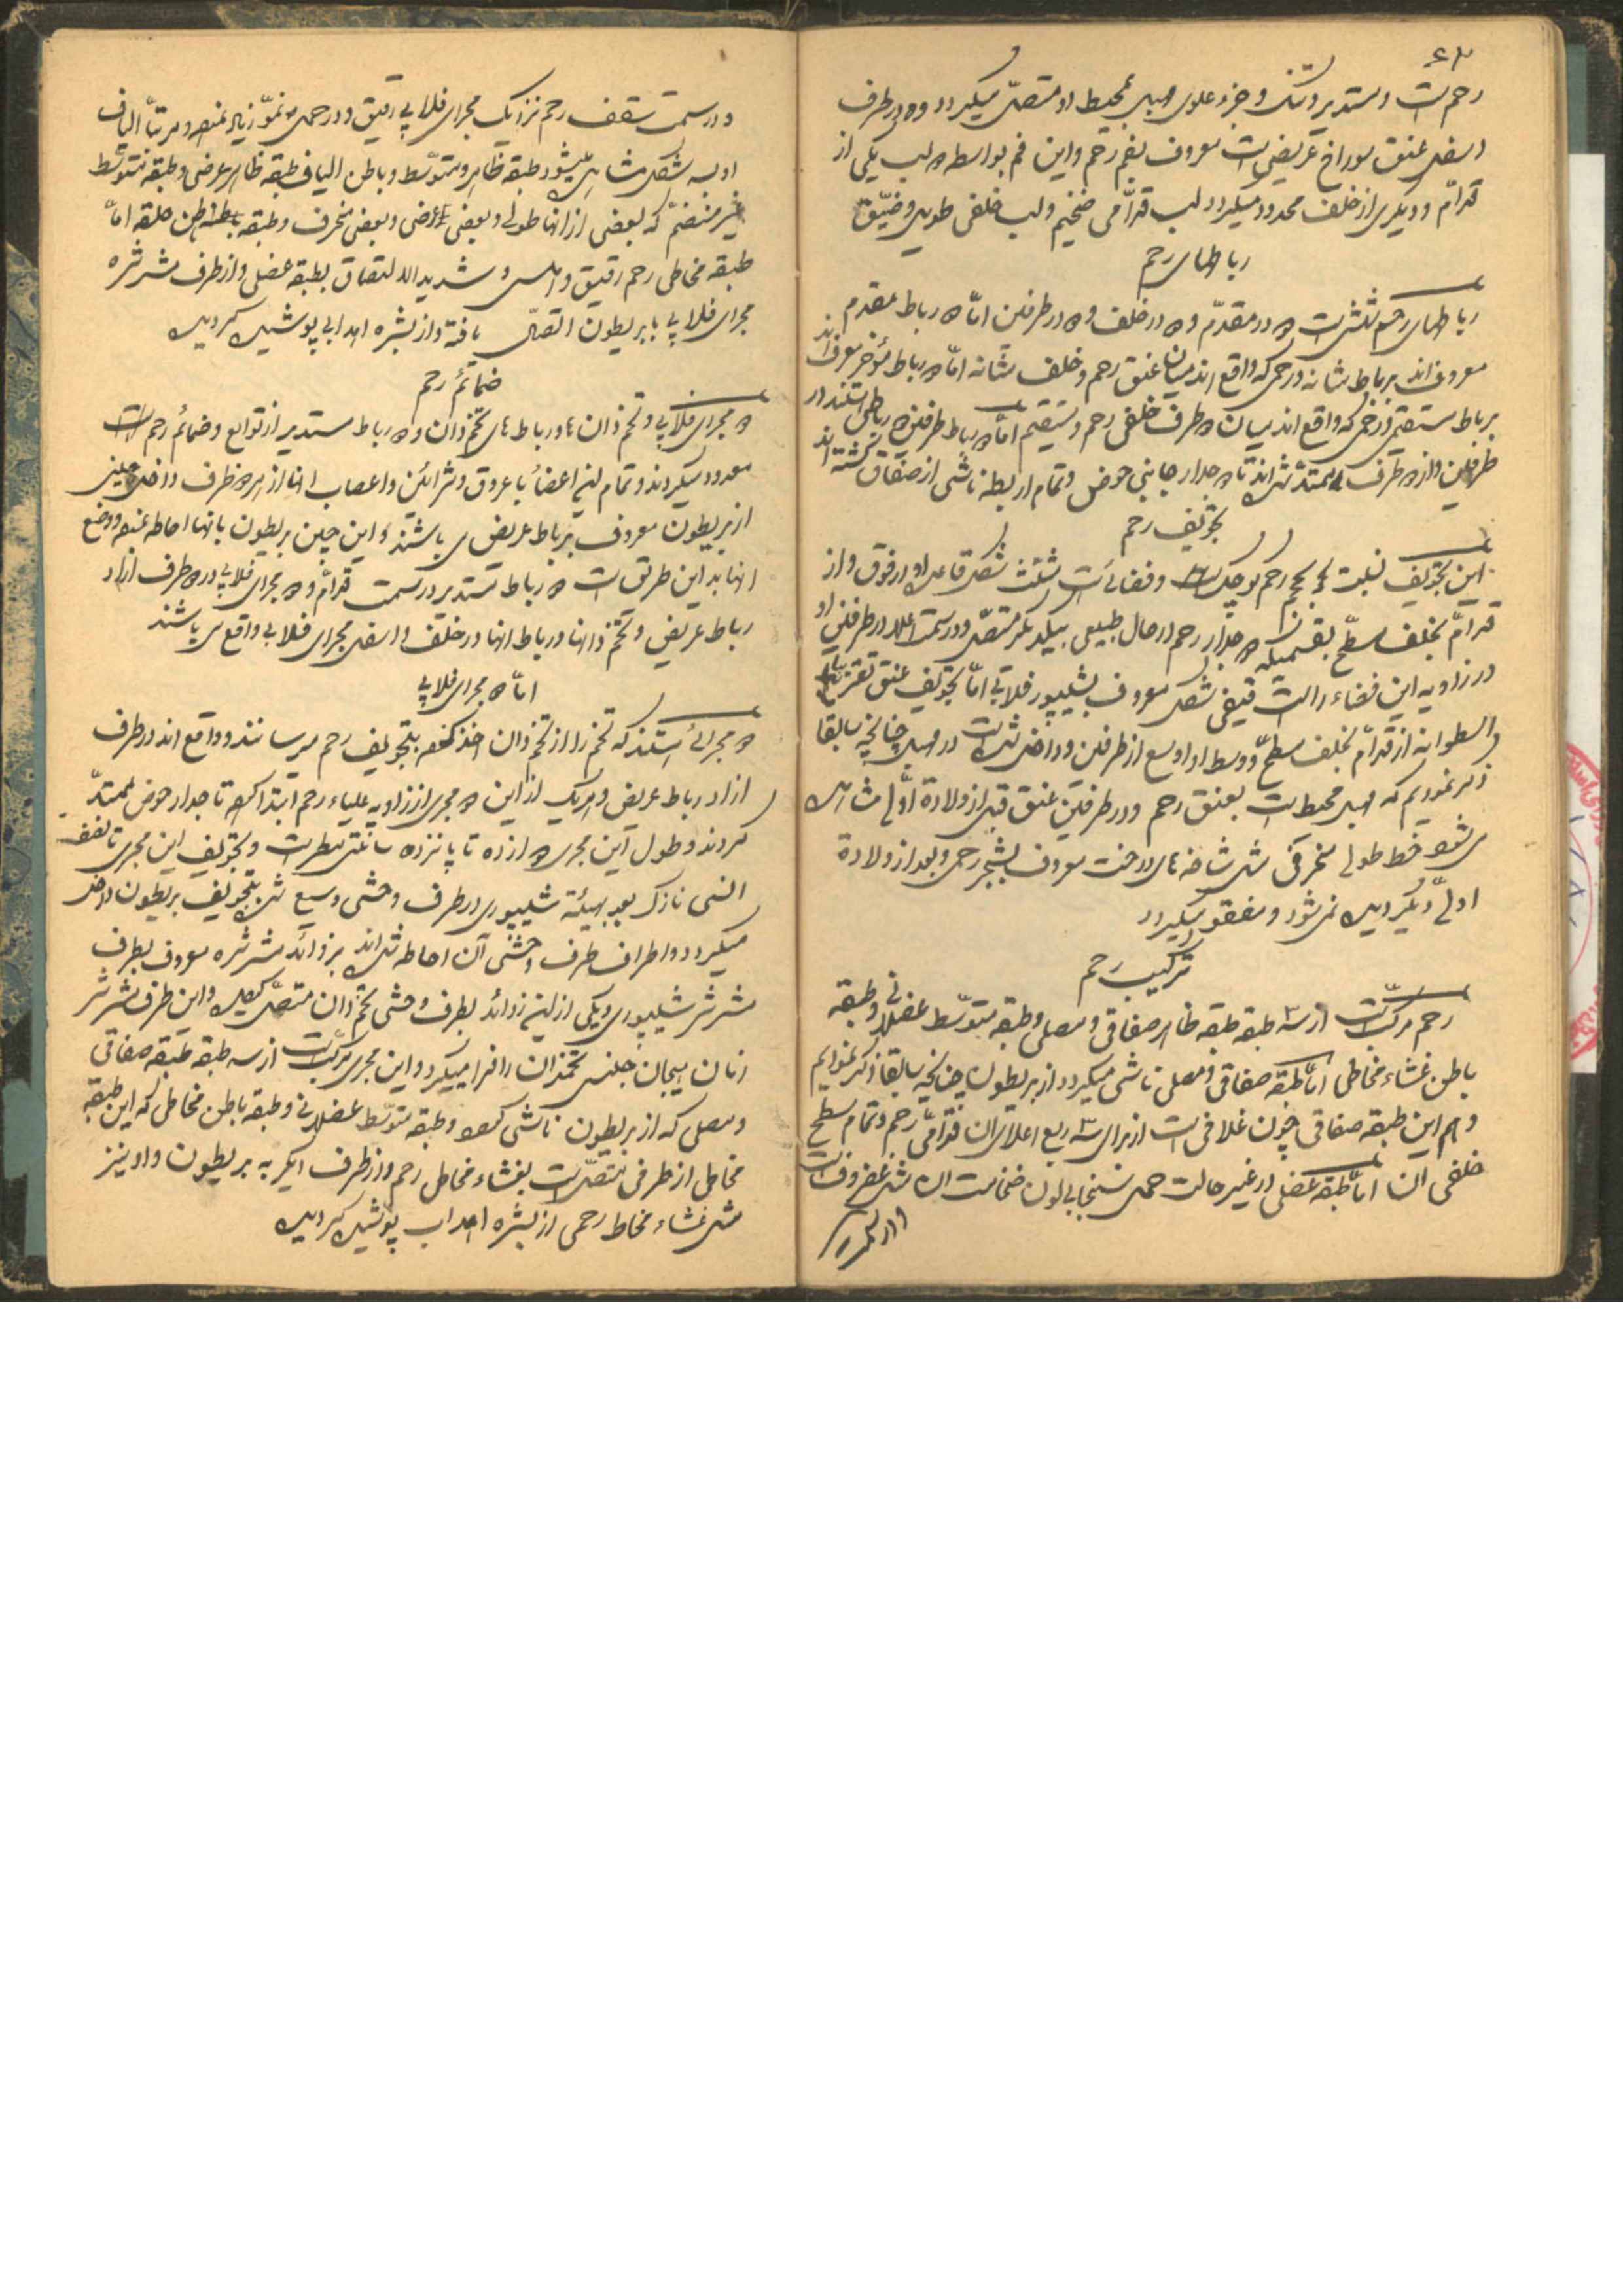 ۶۳
رحم است و مستدیر و تنک و جزء علوی مهبل بمحیط او متصل میگردد و در طرف
اسفل عنق سوراخ عریضی است معروف بفم رحم و این فم بواسطه دو لب یکی از
قدام و دیگری از خلف محدود میگردد لب قدامی ضخیم و لب خلفی طویل و ضیق
رباطهای رحم
رباطهای رحم شش است دو در مقدم و دو در خلف و دو در طرفین اما دو رباط مقدم
معروف اند برباط مثانه و رحمی که واقع اند میان عنق رحم و خلف مثانه اما دو رباط مؤخر معروف اند
برباط مستقیمی و رحمی که واقع اند میان دو طرف خلفی رحم و مستقیم اما دو رباط طرفین دو رباطی استند در
طرفین و از دو طرف ممتد شده اند تا دو جدار جانبی حوض و تمام اربطه ناشی از صفاق گشته اند
تجویف رحم
این تجویف نسبت بحجم رحم کوچک است و فضائی است مثلث شکل قاعده او از فوق و از
قدام بخلف مسطح بقسمیکه دو جدار رحم در حال طبیعی بیکدیگر متصل و در سمت اعلا در طرفین او
در زاویه این فضاء را است قیفی شکل معروف بشیپور فلاپی اما تجویف عنق تقریبا
اسطوانه از قدام بخلف مسطح و وسط او اوسع از طرفین و داخل شده است در مهبل چنانچه سابقا
ذکر نمودیم که مهبل محیط است بعنق رحم و در طرفین عنق قبل از ولادة اول مشاهده
می شود خط طولی منحرفی مثل شاخه های درخت معروف بشجر رحمی و بعد از ولادة
اولی دیگر دیده نمی شود و مفقود میگردد
ترکیب رحم
رحم مرکب است از سه طبقه طبقه ظاهر صفاقی و مصلی و طبقه متوسط عضلانی و طبقه
باطن غشاء مخاطی اما طبقه صفاقی و مصلی ناشی میگردد از پریطون چنانچه سابقا ذکر نمودیم
و هم این طبقه صفاقی چون غلافی است از برای سه ربع اعلای قدامی رحم و تمام سطح
خلفی ان اما طبقه عضلی در غیر حالت حمل سنجابی لون ضخامت ان مثل غضروف است
و در سمت سقف رحم نزدیک مجرای فلاپی رقیق و در حمل نمو زیاد نموده و مرتبا الیاف
او بسه شکل مشاهده میشود طبقه ظاهر و متوسط و باطن الیاف طبقه ظاهر عرضی و طبقه متوسط
غیر منضم که بعضی از انها طولی و بعضی عرضی و بعضی منحرف و طبقه باطن حلقه اما
طبقه مخاطی رحم رقیق و املس و شدید الالتصاق بطبقه عضلی و از طرف شرشره
مجرای فلاپی با پریطون اتصال یافته و از بشره اهدابی پوشیده گردیده
ضمائم رحم
دو مجرای فلاپی و تخم دان ها و رباط های تخم دان و دو رباط مستدیر از توابع و ضمائم رحم است
معدود میگردند و تمام این اعضاء با عروق و شرائین و اعصاب انها از هر دو طرف داخل چینی
از پریطون معروف برباط عریض می باشند و این چین پریطون بانها احاطه نموده و وضع
انها به این طریق است دو رباط مستدیر در سمت قدام و دو مجرای فلاپی در دو طرف ازاد
رباط عریض و تخم دانها و رباط انها در خلف و اسفل مجرای فلاپی واقع می باشند
اما دو مجرای فلاپی
دو مجرائی استند که تخم را از تخم دان اخذ نموده بتجویف رحم میرسانند و واقع اند در طرف
ازاد رباط عریض و هریک از این دو مجری از زاویه علیاء رحم ابتدا نموده تا جدار حوض ممتد
گردند و طول این مجری دوازده تا پانزده سانتیمتر است و تجویف این مجری تا نصف
انسی نازک بعد بهیئة شیپوری در طرف وحشی وسیع شده بتجویف پریطون داخل
میگردد و اطراف طرف وحشی آن احاطه شده اند بزوائد شرشره معروف بطرف
شرشر شیپوری و یکی از این زوائد بطرف وحشی تخم دان متصل شده و این طرف شرشر
زمان هیجان جنس تخمدان را فرا میگیرد و این مجری مرکب است از سه طبقه طبقه صفاقی
و مصلی که از پریطون ناشی شده و طبقه متوسط عضلانی و طبقه باطن مخاطی که این طبقه
مخاطی از طرفی متصل است بغشاء مخاطی رحم و از طرف دیگر به پریطون و او نیز
مثل غشاء مخاط رحمی از بشره اهداب پوشیده گردیده